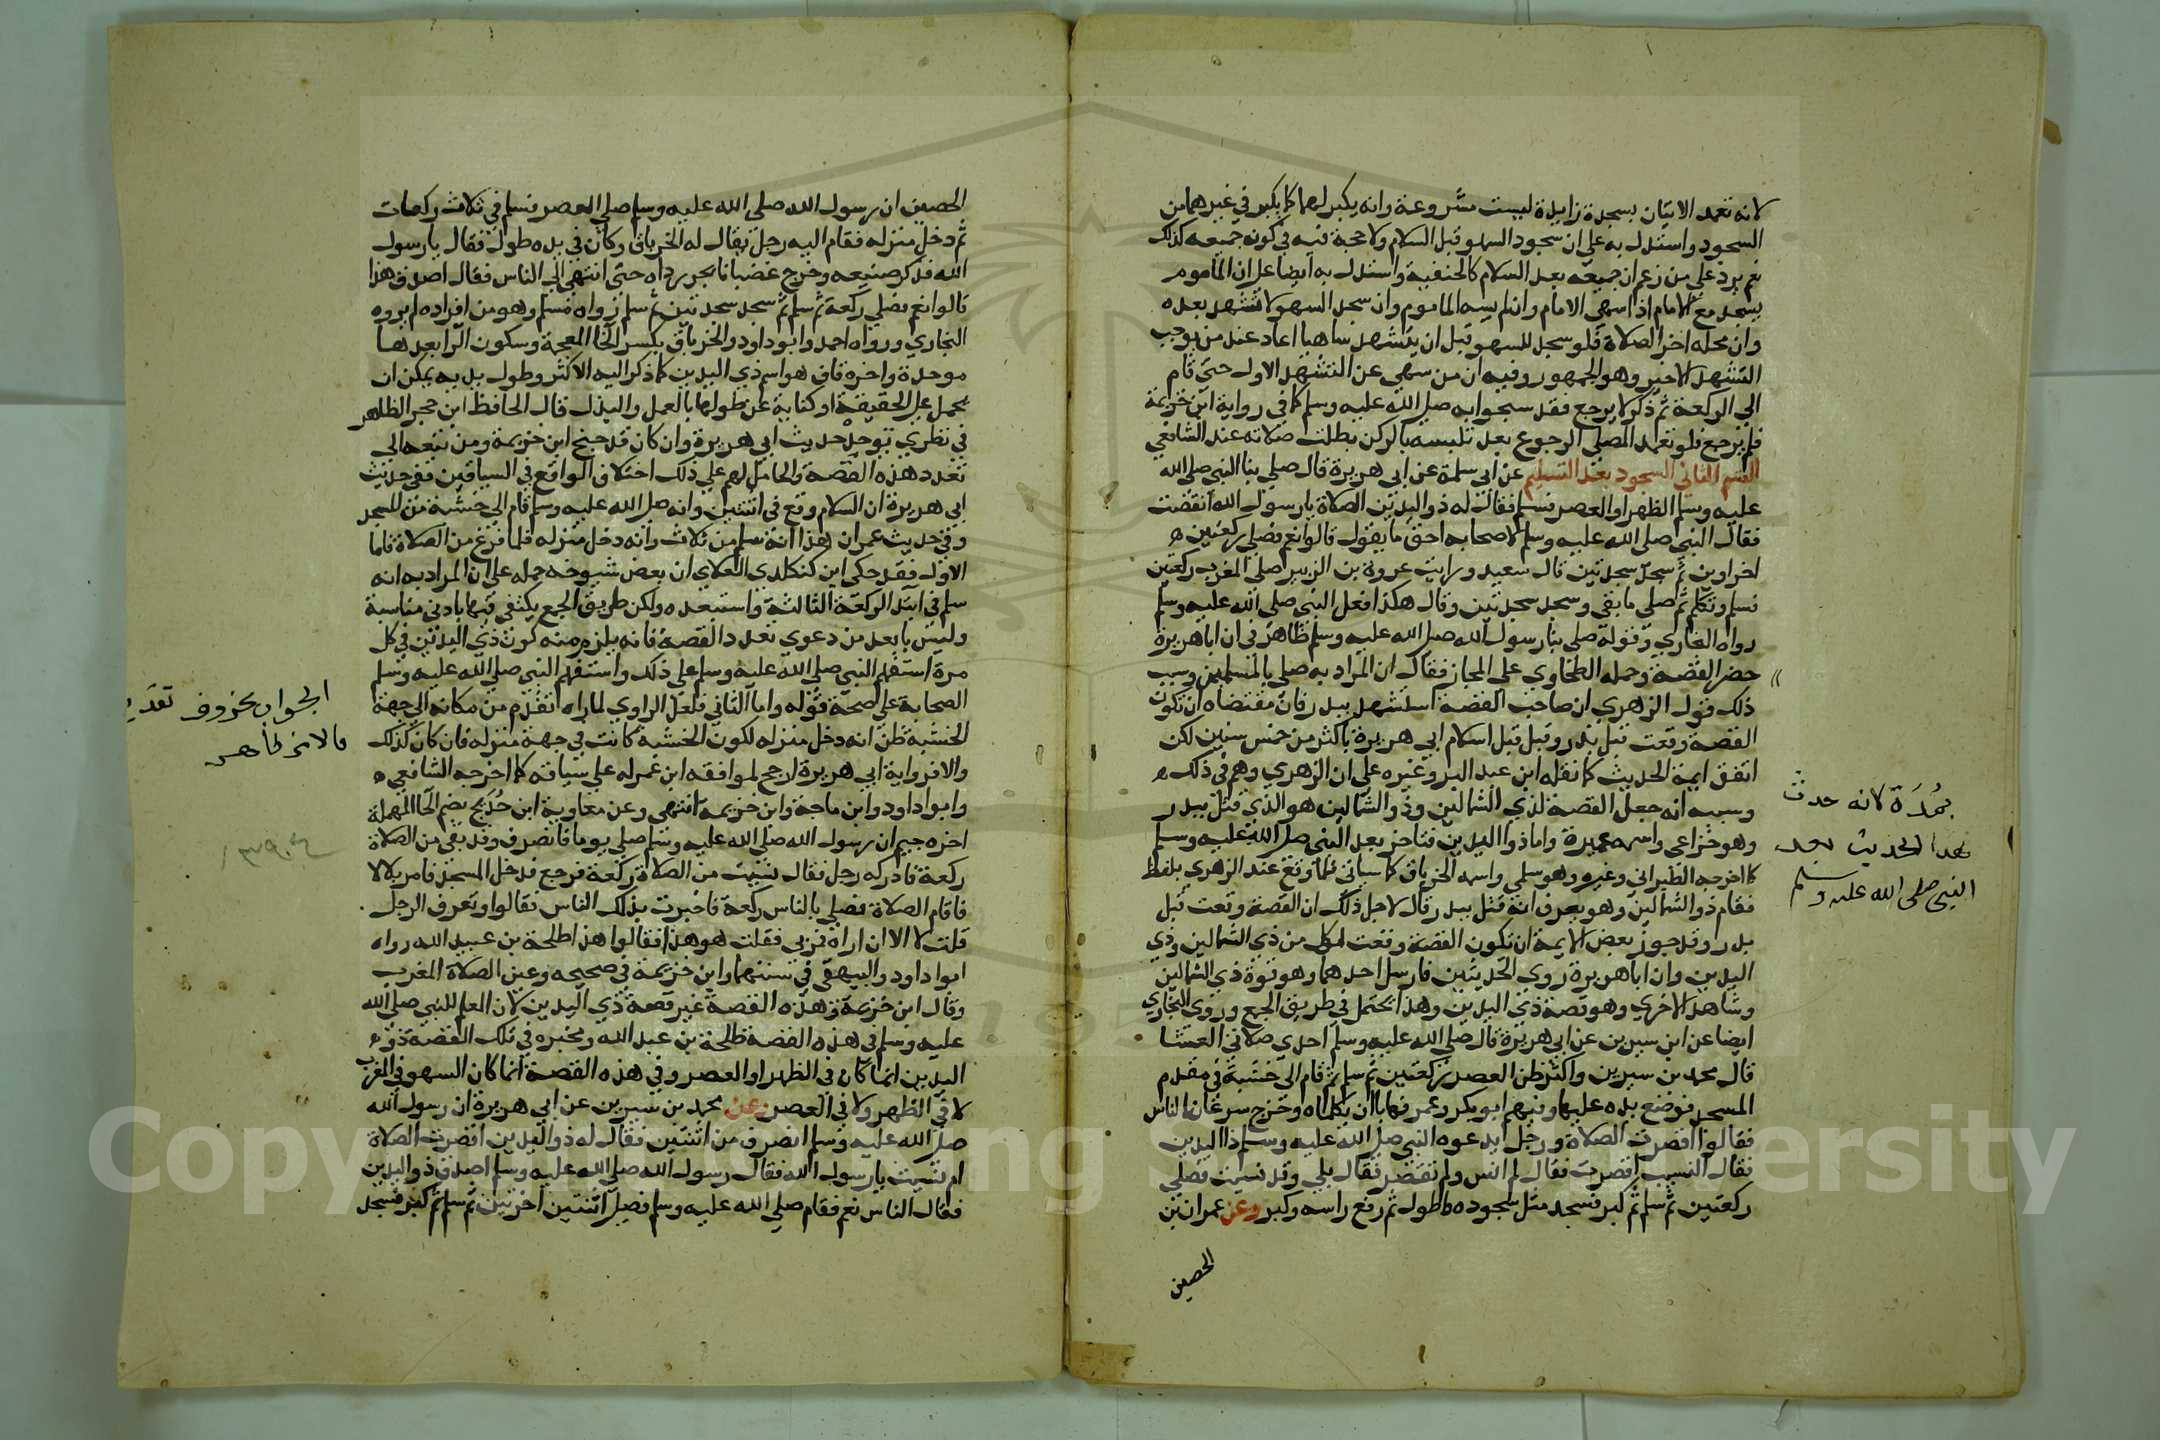 لانه تعمد الاتيان بسجدة زايدة ليست مشروعة وانه يكبر لهما كما يكبر في غيرهما من
السجود واستدل به علي ان سجود السهو قبل السلام ولا حجة فيه في كونه جميعه كذلك
نعم يرد علي من زعم ان جميعه بعد السلام كالحنفية واستدل به ايضا على ان الماموم
يسجد مع الامام اذا سهي الامام وان لم يسه الماموم وان سجد السهو لا تشهد بعده
وان محله اخر الصلاة فلو سجد للسهو قبل ان يتشهد ساهيا اعاد عند من يوجب
التشهد الاخير وهو الجمهور وفيه ان من سهي عن التشهد الاول حتى قام
الي الركعة ثم ذكر لا يرجع فقد سبحوا به صلي الله عليه وسلم كما في رواية ابن خزيمة
فلم يرجع فلو تعمد المصلي الرجوع بعد تلبسه بالركن بطلت صلاته عند الشافعي
القسم الثاني السجود بعد التسليم عن ابي سلمة عن ابي هريرة قال صلي بنا النبي صلي الله
عليه وسلم الظهر او العصر فسلم فقال له ذو اليدين الصلاة يا رسول الله انقضت
فقال النبي صلي الله عليه وسلم لاصحابه احق ما يقول قالوا نعم فصلي ركعتين
اخراوين ثم سجد سجدتين قال سعيد ورايت عروة بن الزبير صلي المغرب ركعتين
فسلم وتكلم ثم صلي ما بقي وسجد سجدتين وقال هكذا فعل النبي صلي الله عليه وسلم
رواه البخاري وقوله صلي بنا رسول الله صلي الله عليه وسلم ظاهر في ان اباهريرة
حضر القصة وحمله الطحاوي علي المجاز فقال ان المراد به صلي بالمسلمين وسبب
ذلك قول الزهري ان صاحب القصة استشهد ببدر فان مقتضاه ان تكون
القصة وقعت قبل بدر وقيل قبل اسلام ابي هريرة باكثر من خمس سنين لكن
اتفق ايمة الحديث كما نقله ابن عبد البر وغيره علي ان الزهري وهم في ذلك
وسببه انه جعل القصة لذي الشمالين وذو الشمالين هو الذي قتل ببدر
وهو خزاعي واسمه عميرة واما ذو اليدين فتاخر بعد النبي صلي الله عليه وسلم
بمدة لانه حدث
بهذا الحديث بعد
النبي صلى الله عليه وسلم
كما اخرجه الطبراني وغيره وهو سلمي واسمه الخرباق كما سياتي فلما وقع عند الزهري بلفظ
فقام ذو الشمالين وهو يعرف انه قتل ببدر قال لاجل ذلك ان القصة وقعت قبل
بدر وقد جوز بعض الايمة ان تكون القصة وقعت لكل من ذي الشمالين وذي
اليدين وان اباهريرة روي الحديثين فارسل احدهما وهو قصة ذي الشمالين
وشاهد الاخري وهو قصة ذي اليدين وهذا يحتمل في طريق الجمع وروي البخاري
ايضا عن ابن سيرين عن ابي هريرة قال صلي الله عليه وسلم احدي صلاتي العشا
قال محمد بن سيرين واكثر ظن العصر ركعتين ثم سلم ثم قام الي خشبة في مقدم
المسجد فوضع يده عليها وفيهم ابو بكر وعمر فهابا ان يكلماه وخرج سرعان الناس
فقالوا اقصرت الصلاة ورجل يدعوه النبي صلي الله عليه وسلم ذا اليدين
فقال انسيت ام قصرت فقال لم انس ولم تقصر فقال بلي وقد نسيت فصلي
ركعتين ثم سلم ثم كبر فسجد مثل سجوده او اطول ثم رفع راسه وكبر وعن عمران بن
الحصين
الحصين ان رسول الله صلي الله عليه وسلم صلي العصر فسلم في ثلاث ركعات
ثم دخل منزله فقام اليه رجل يقال له الخرباق وكان في يده طول فقال يا رسول
الله فذكر صنيعه وخرج غضبانا يجر رداه حتى انتهي الي الناس فقال اصدق هذا
قالوا نعم فصلي ركعة ثم سلم ثم سجد سجدتين ثم سلم رواه مسلم وهو من افراده لم يروه
البخاري ورواه احمد وابو داود والخرباق بكسر الخا المعجمة وسكون الرا بعدها
موحدة واخره قاف هو اسم ذي اليدين كما ذكر اليه الاكثر وطول يديه يمكن ان
يحمل علي الحقيقة او كناية عن طولها بالعمل والبذل قال الحافظ ابن حجر الظاهر
في نظري توحد حديث ابي هريرة وان كان قد جنح ابن خزيمة ومن تبعه الي
تعدد هذه القصة والحامل لهم علي ذلك اختلاف الواقع في السياقين ففي حديث
ابي هريرة ان السلام وقع في اثنتين وانه صلي الله عليه وسلم قام الي خشبة في المسجد
وفي حديث عمران هذا انه سلم من ثلاث وانه دخل منزله فلما فرغ من الصلاة فاما
الاول فقد حكي ابن كيكلدي العلاي ان بعض شيوخه حمله علي ان المراد به انه
سلم في ابتدا الركعة الثالثة واستبعده ولكن طريق الجمع يكتفي فيها بادني مناسبة
وليس بابعد من دعوي تعدد القصة فانه يلزم منه كون ذي اليدين في كل
مرة استفهم النبي صلي الله عليه وسلم علي ذلك واستفهم النبي صلي الله عليه وسلم
الصحابة علي صحة قوله واما الثاني فلعل الراوي لما راه تقدم من مكانه الي جهة
الخشبة ظن انه دخل منزله لكون الخشبة كانت في جهة منزله فان كان كذلك
الجواب محذوف تقديره
فالامر ظاهر
والا فرواية ابي هريرة ارجح لموافقه ابن عمر له علي سياقه كما اخرجه الشافعي
وابو داود وابن ماجة وابن خزيمة انتهي وعن معاوية ابن حديج بضم الحا المهملة
اخره جيم ان رسول الله صلي الله عليه وسلم صلي يوما فانصرف وقد بقي من الصلاة
ركعة فادركه رجل فقال نسيت من الصلاة ركعة فرجع فدخل المسجد فامر بلالا
فاقام الصلاة فصلي بالناس ركعة فاخبرت بذلك الناس فقالوا وتعرف الرجل
قلت لا الا ان اراه فمر بي فقلت هو هذا فقالوا هذا طلحة بن عبيد الله رواه
ابو داود والبيهقي في سننهما وابن خزيمة في صحيحه وعين الصلاة المغرب
وقال ابن خزيمة وهذه القصة غير قصة ذي اليدين لان المعلم للنبي صلي الله
عليه وسلم في هذه القصة طلحة بن عبد الله ومخبره في تلك القصة ذو
اليدين انما كان في الظهر او العصر وفي هذه القصة انما كان السهو في المغرب
لا في الظهر ولا في العصر وعن محمد بن سيرين عن ابي هريرة ان رسول الله
صلي الله عليه وسلم انصرف من اثنتين فقال له ذو اليدين اقصرت الصلاة
ام نسيت يا رسول الله فقال رسول الله صلي الله عليه وسلم اصدق ذو اليدين
فقال الناس نعم فقام صلي الله عليه وسلم فصلي اثنتين اخرتين ثم سلم ثم كبر فسجد